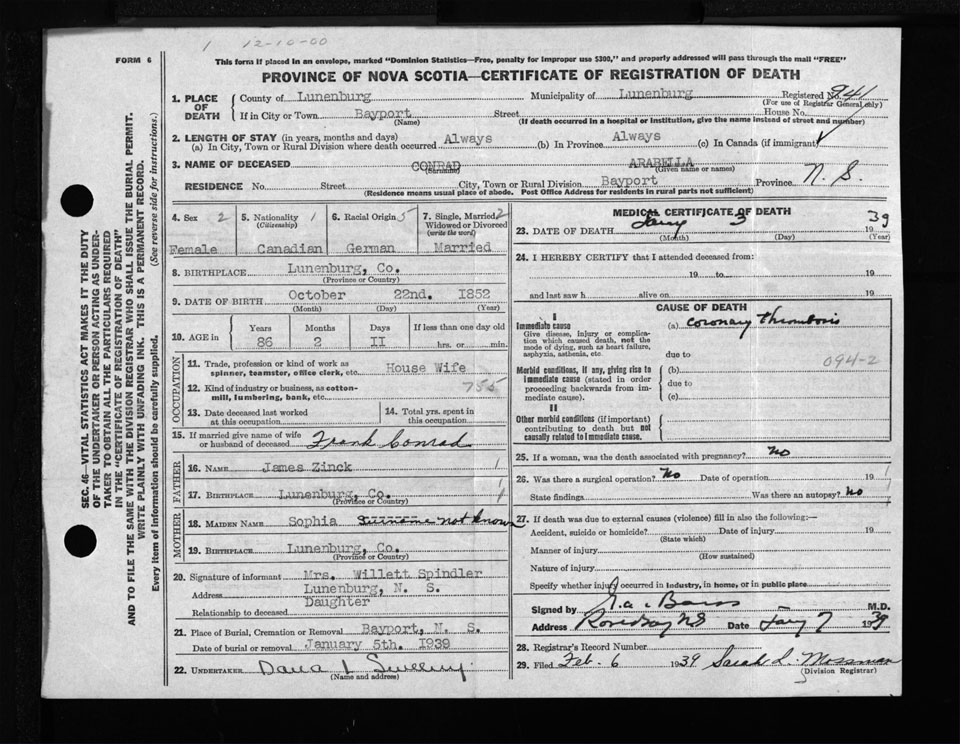 1 12-10-00
FORM 6
This form if placed in an envelope, marked "Dominion Statistics—Free, penalty for improper use $300," and properly addressed will pass through the mail "FREE"
PROVINCE OF NOVA SCOTIA—CERTIFICATE OF REGISTRATION OF DEATH
1. PLACE OF DEATH County of Lunenburg Municipality of Lunenburg Registered No. 941
(For use of Registrar General only)
If in City or Town Bayport Street House No.
(Name) (If death occurred in a hospital or institution, give the name instead of street and number)
2. LENGTH OF STAY (in years, months and days)
(a) In City, Town or Rural Division where death occurred Always (b) In Province Always (c) In Canada (if immigrant)
3. NAME OF DECEASED CONRAD ARABELLA
(Surname) (Given name or names)
RESIDENCE No. Street City, Town or Rural Division Bayport Province N. S.
(Residence means usual place of abode. Post Office Address for residents in rural parts not sufficient)
SEC. 46—VITAL STATISTICS ACT MAKES IT THE DUTY
OF THE UNDERTAKER OR PERSON ACTING AS UNDER-
TAKER TO OBTAIN ALL THE PARTICULARS REQUIRED
IN THE "CERTIFICATE OF REGISTRATION OF DEATH"
AND TO FILE THE SAME WITH THE DIVISION REGISTRAR WHO SHALL ISSUE THE BURIAL PERMIT.
WRITE PLAINLY WITH UNFADING INK. THIS IS A PERMANENT RECORD.
Every item of Information should be carefully supplied. (See reverse side for instructions.)
4. Sex 2 5. Nationality 1 6. Racial Origin 5 7. Single, Married 2
(Citizenship) Widowed or Divorced
(write the word)
Female Canadian German Married
8. BIRTHPLACE Lunenburg, Co.
(Province or Country)
9. DATE OF BIRTH October 22nd. 1852
(Month) (Day) (Year)
10. AGE in Years Months Days If less than one day old
86 2 II hrs. or min.
OCCUPATION
11. Trade, profession or kind of work as
spinner, teamster, office clerk, etc. House Wife
12. Kind of industry or business, as cotton-
mill, lumbering, bank, etc. 755
13. Date deceased last worked
at this occupation
14. Total yrs. spent in
this occupation
15. If married give name of wife
or husband of deceased Frank Conrad
FATHER
16. NAME James Zinck 1
17. BIRTHPLACE Lunenburg, Co. 1
(Province or Country)
MOTHER
18. MAIDEN NAME Sophia Surname not known
19. BIRTHPLACE Lunenburg, Co.
(Province or Country)
20. Signature of informant Mrs. Willett Spindler
Address Lunenburg, N. S.
Relationship to deceased Daughter
21. Place of Burial, Cremation or Removal Bayport, N. S.
Date of burial or removal January 5th. 1939
22. UNDERTAKER
(Name and address)
MEDICAL CERTIFICATE OF DEATH
23. DATE OF DEATH Jany 3 1939
(Month) (Day) (Year)
24. I HEREBY CERTIFY that I attended deceased from:
19 to 19
and last saw h alive on 19
CAUSE OF DEATH
I
Immediate cause (a) coronary thrombosis
Give disease, injury or complica-
tion which caused death, not the
mode of dying, such as heart failure,
asphyxia, asthenia, etc. due to
094-2
Morbid conditions, if any, giving rise to (b)
immediate cause (stated in order due to
proceeding backwards from im-
mediate cause). (c)
II
Other morbid conditions (if important)
contributing to death but not
causally related to immediate cause.
25. If a woman, was the death associated with pregnancy? no
26. Was there a surgical operation? No Date of operation 19
State findings Was there an autopsy? No
27. If death was due to external causes (violence) fill in also the following:—
Accident, suicide or homicide? Date of injury 19
(State which)
Manner of injury
(How sustained)
Nature of injury
Specify whether injury occurred in industry, in home, or in public place
Signed by M.D.
Address Rose Bay NS Date Jany 7 1939
28. Registrar's Record Number
29. Filed Feb. 6 1939 Sarah L. Mossman
(Division Registrar)